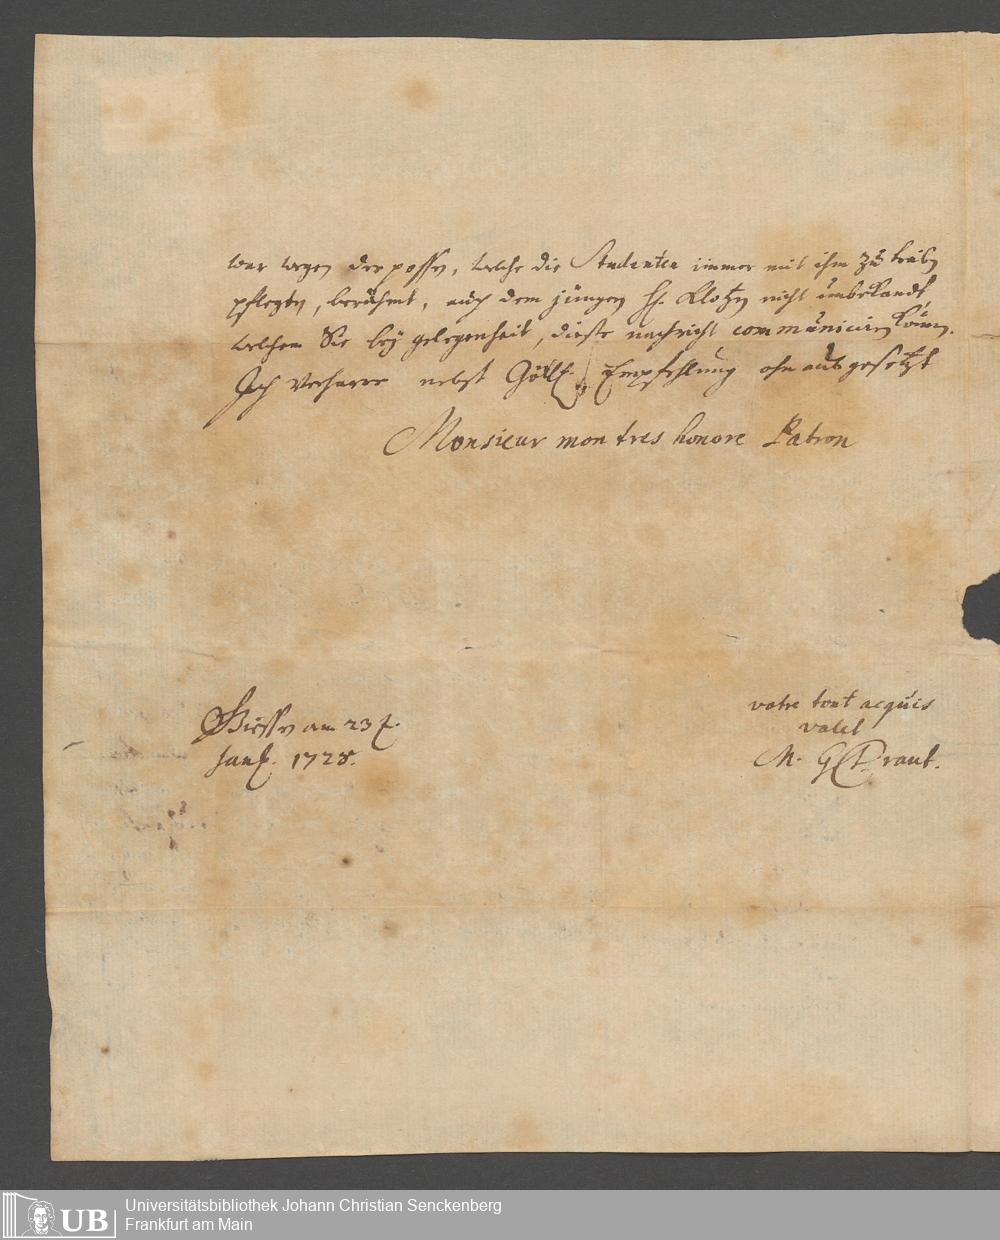 war wegen der possen, welche die Studenten immer mit ihm zu treiben
pflegten, berühmt, auch dem jungen H. Klotzen nicht unbekandt,
welchem Sie bey gelegenheit, dieße nachricht communiciren können.
Ich verharre nebst Göttl. Empfehlung ohnausgesetzt
Monsieur mon tres honore Patron
Giessen am 23
Jan. 1728.
votre tout acquis
valet
M. G Draut.
UB
Universitätsbibliothek Johann Christian Senckenberg
Frankfurt am Main